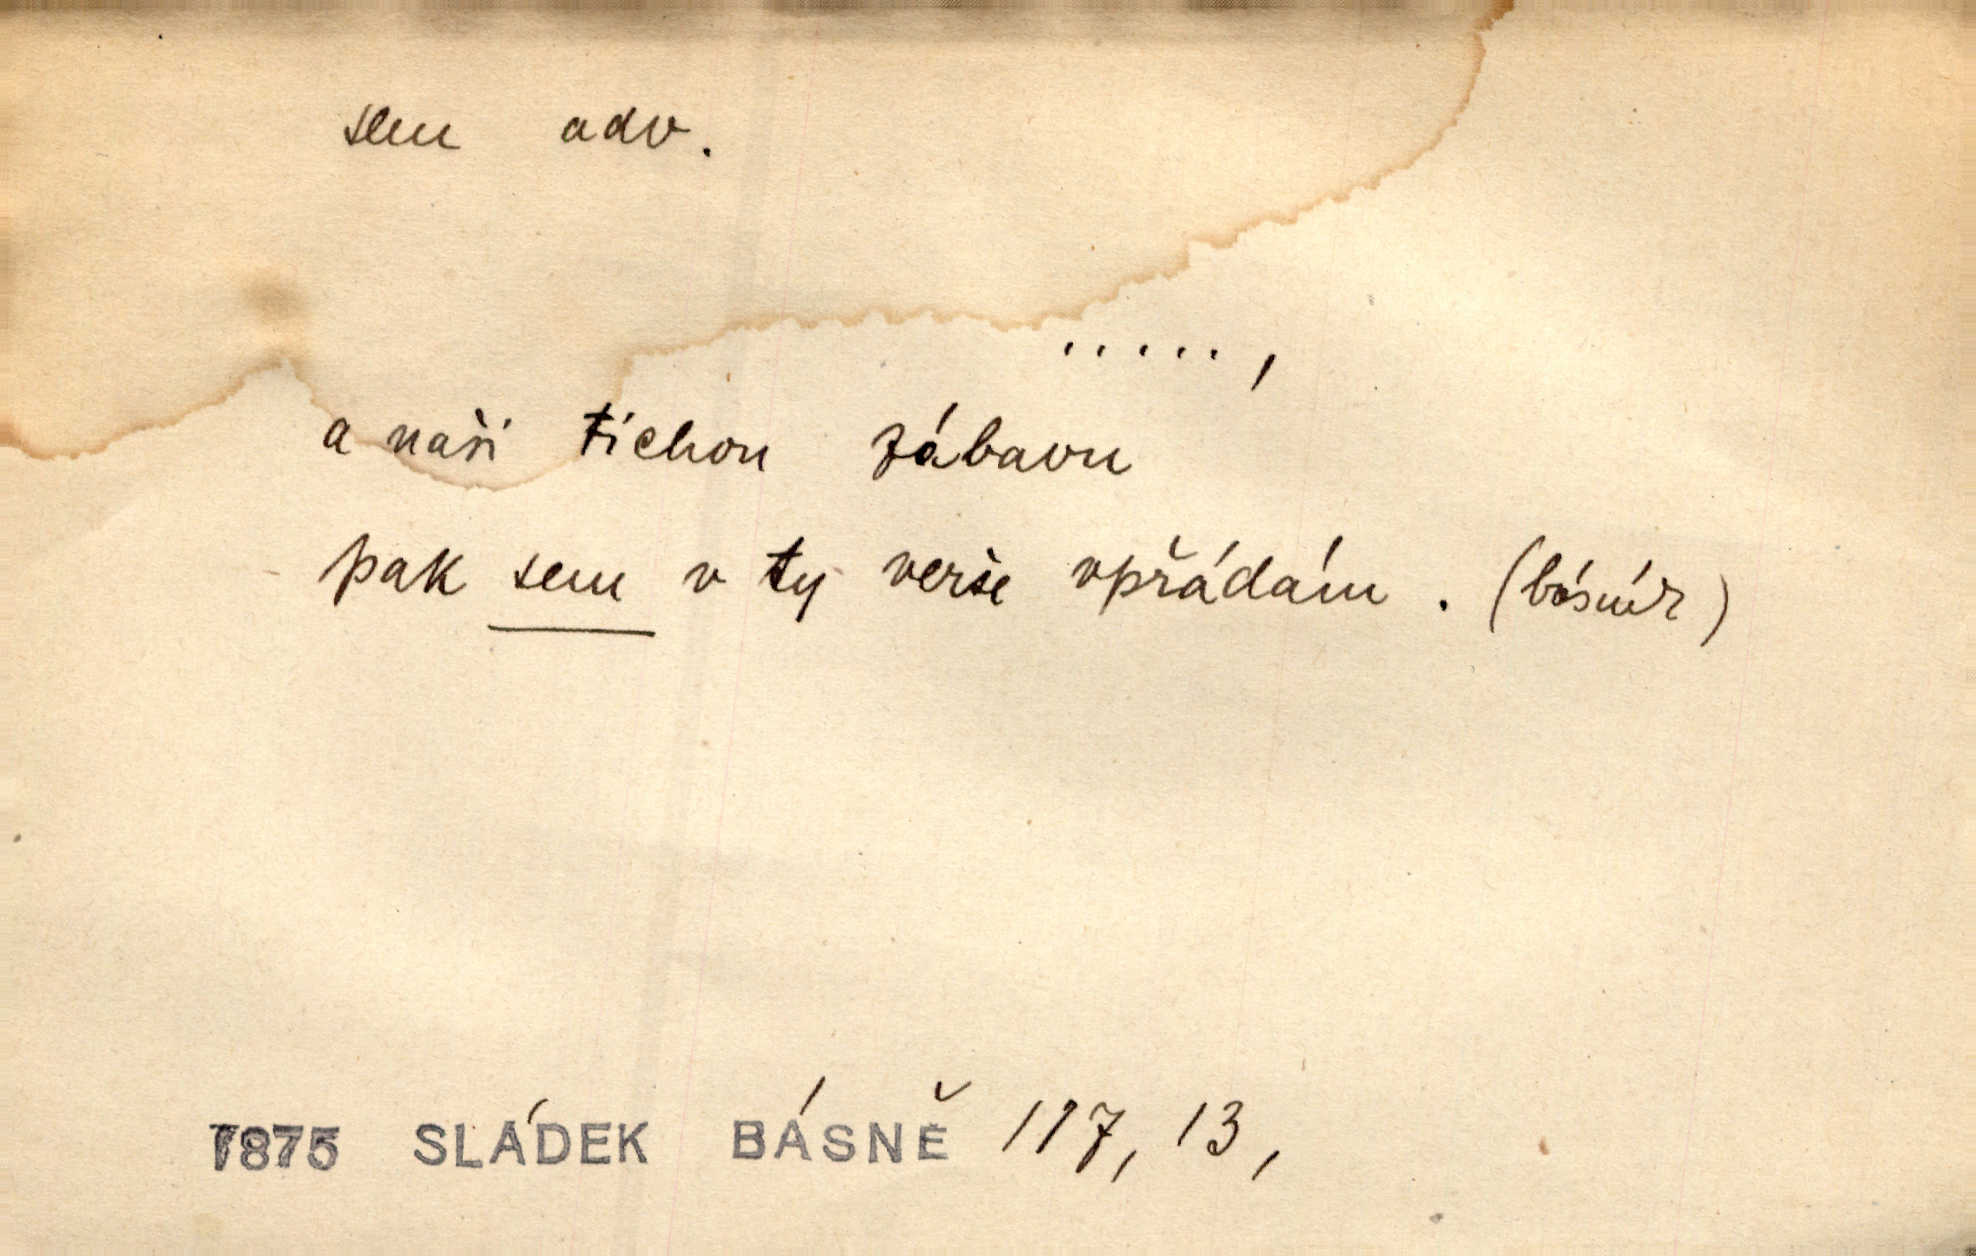 sem adv.
.....,
a naši tichou zábavu
pak sem v ty verše vpřádám. (básník)
1875 SLÁDEK BÁSNĚ 117, 13,